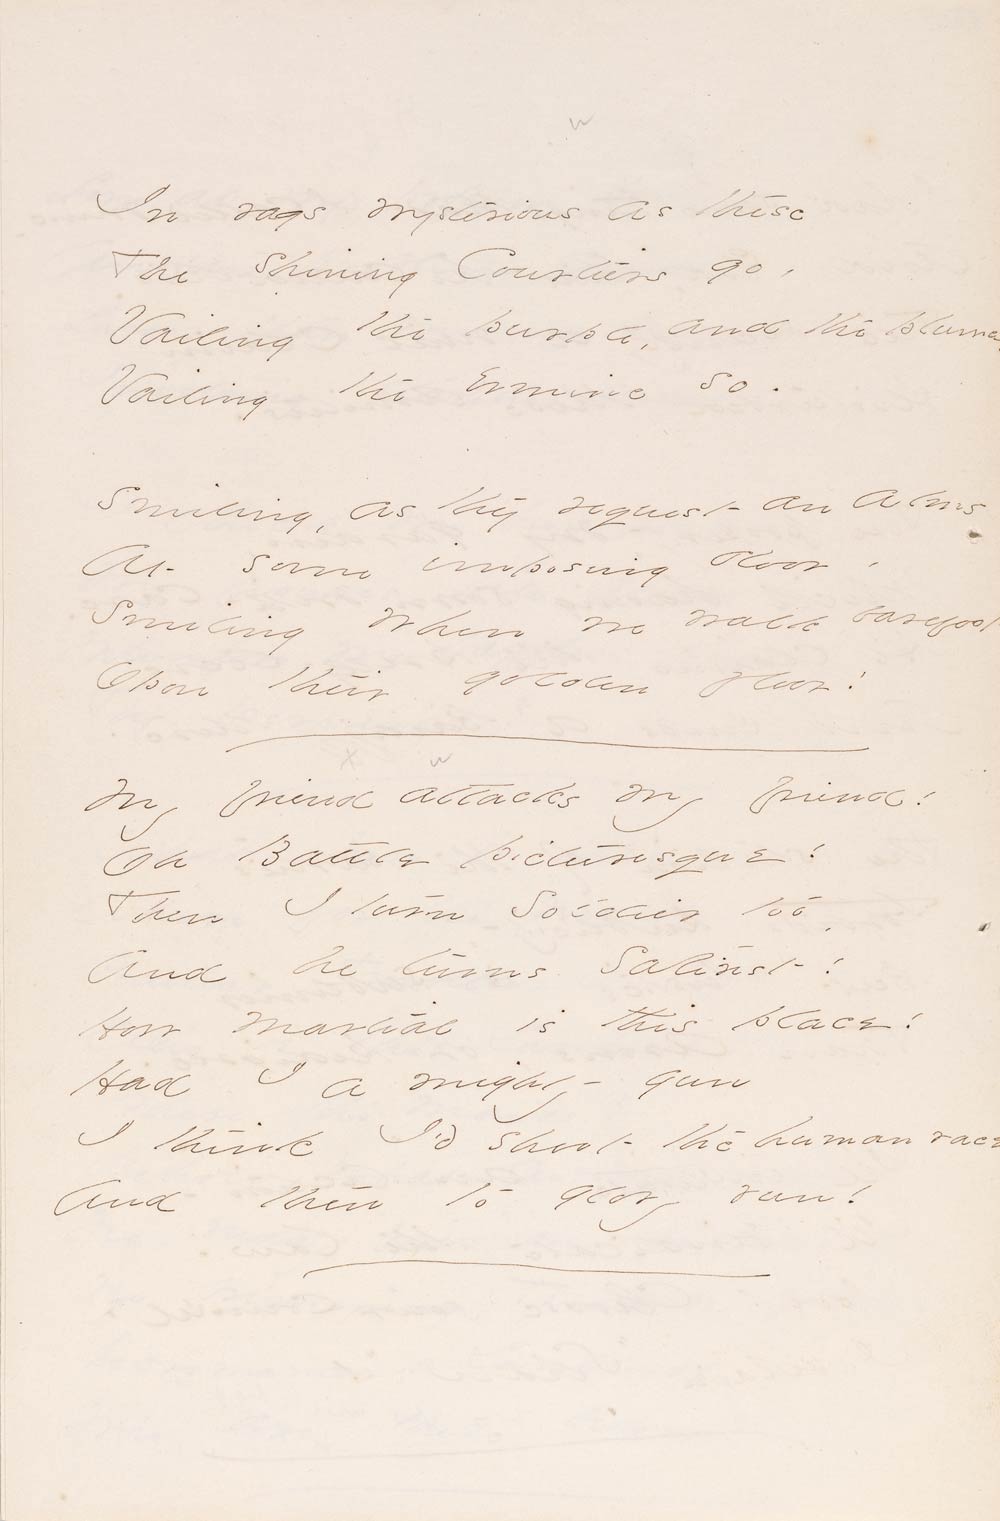 w
In rags mysterious as these
The Shining Courtiers go,
Vailing the purple, and the plumes,
Vailing the Ermine so.
Smiling, as they request an alms
At some imposing door,
Smiling when we walk barefoot
Upon their golden floor!
x w
My friend attacks my friend!
Oh Battle picturesque!
Then I turn Soldier too,
And he turns Satirist!
How martial is this place!
Had I a mighty gun
I think I'd shoot the human race
And then to glory run!